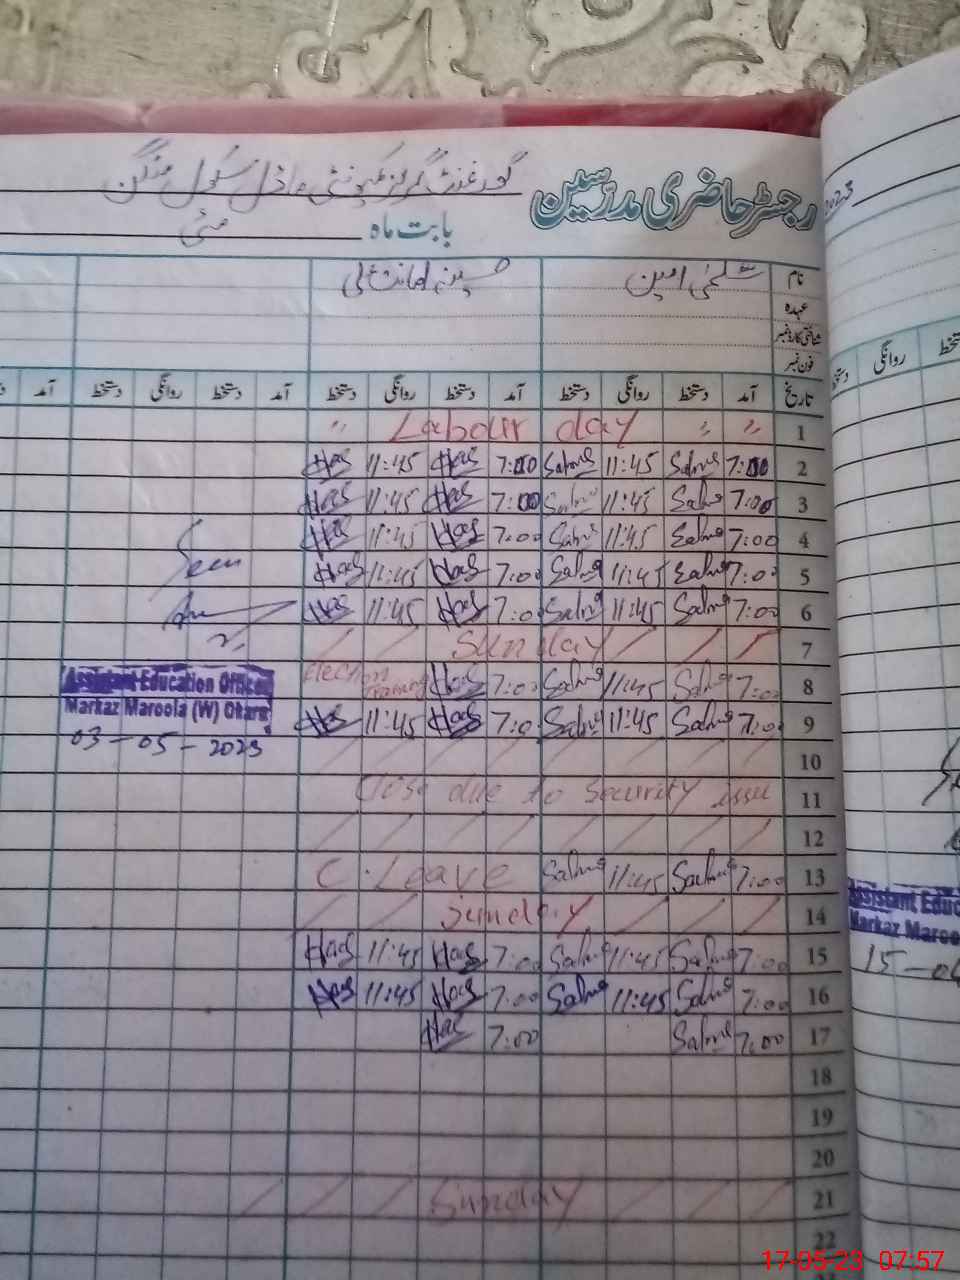 رجسٹر حاضری مدرسین گورنمنٹ گرلز کمیونٹی ماڈل سکول
بابت ماہ مئی
2023
نام سلمیٰ امین حسینہ امانت علی
عہدہ
شناختی کارڈ نمبر
فون نمبر
تاریخ آمد دستخط روانگی دستخط آمد دستخط روانگی دستخط آمد دستخط روانگی دستخط آمد
روانگی دستخط
1 " " Labour day "
2 7:00 Salma 11:45 Salma 7:00 Has 11:45 Has
3 7:00 Salma 11:45 Salma 7:00 Has 11:45 Has
4 7:00 Salma 11:45 Salma 7:00 Has 11:45 Has
5 7:00 Salma 11:45 Salma 7:00 Has 11:45 Has
6 7:00 Salma 11:45 Salma 7:00 Has 11:45 Has
Seen
7 Sunday
8 7:00 Salma 11:45 Salma 7:00 Has Election Training
9 7:00 Salma 11:45 Salma 7:00 Has 11:45 Has
Assistant Education Officer
Markaz Maroola (W) Okara
03-05-2023
10
11 Close due to Security issu
12
13 7:00 Salma 11:45 Salma C. Leave
14 Sunday
15 7:00 Salma 11:45 Salma 7:00 Has 11:45 Has
16 7:00 Salma 11:45 Salma 7:00 Has 11:45 Has
17 7:00 Salma 7:00 Has
18
19
20
21 Sunday
22
Assistant Educ
Markaz Maroo
15-04
17-05-23 07:57